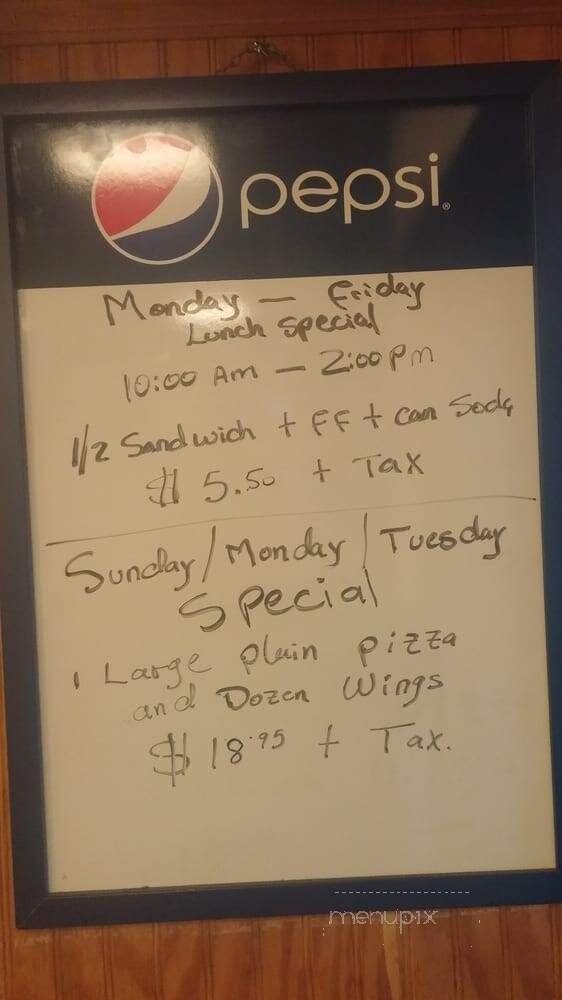 pepsi®
Monday — Friday
Lunch special
10:00 AM — 2:00 PM
1/2 Sandwich + FF + can Soda
$ 5.50 + Tax
Sunday / Monday / Tuesday
Special
1 Large plain pizza
and Dozen Wings
$ 18.95 + Tax.
menupix